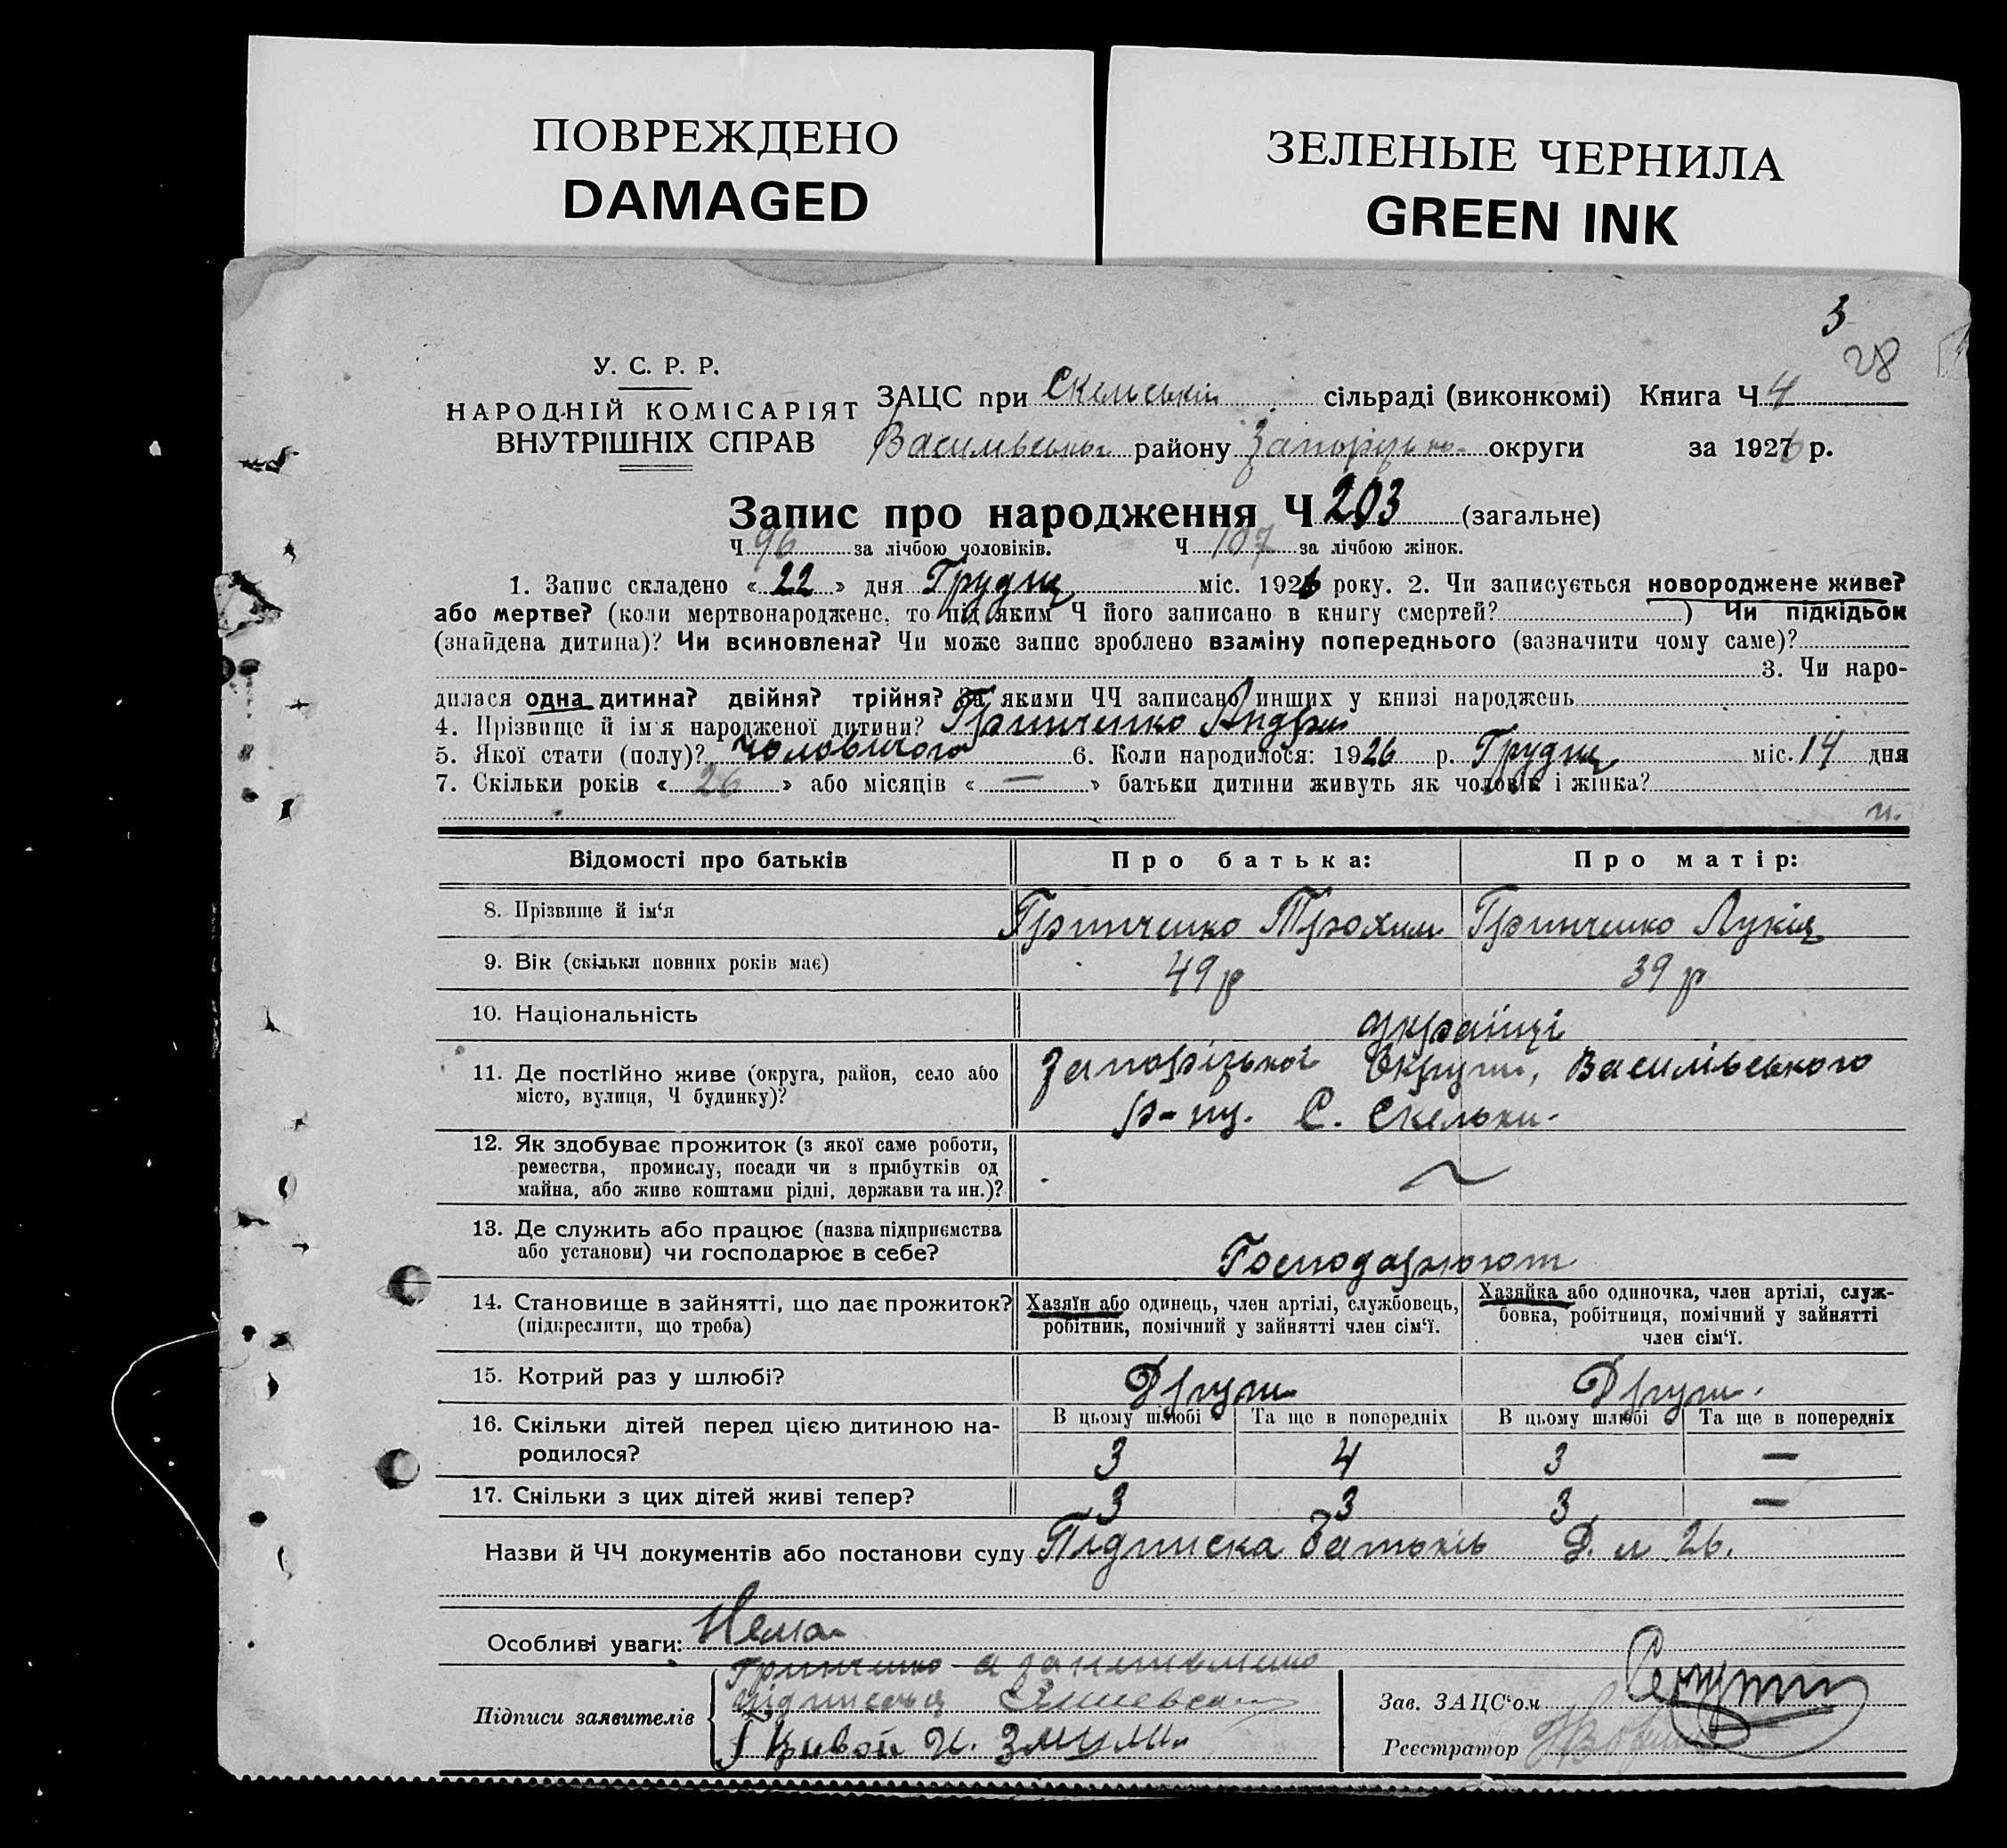 ПОВРЕЖДЕНО
DAMAGED
ЗЕЛЕНЫЕ ЧЕРНИЛА
GREEN INK
3
28
У. С. Р. Р.
НАРОДНІЙ КОМІСАРІЯТ
ВНУТРІШНІХ СПРАВ
ЗАЦС при Скельській сільраді (виконкомі) Книга Ч 4
Васильвської району Запорізької округи за 1926 р.
Запис про народження Ч 203 (загальне)
Ч 96 за лічбою чоловіків. Ч 107 за лічбою жінок.
1. Запис складено « 22 » дня Грудня міс. 1926 року. 2. Чи записується новороджене живе?
або мертве? (коли мертвонароджене, то під яким Ч його записано в книгу смертей? ) Чи підкідьок
(знайдена дитина)? Чи всиновлена? Чи може запис зроблено взаміну попереднього (зазначити чому саме)?
3. Чи наро-
дилася одна дитина? двійня? трійня? За якими ЧЧ записано инших у книзі народжень
4. Прізвище й ім'я народженої дитини? Гринченко Андрій
5. Якої стати (полу)? чоловичого 6. Коли народилося: 1926 р. Грудня міс. 14 дня
7. Скільки років « 26 » або місяців « — » батьки дитини живуть як чоловік і жінка?
Відомості про батьків Про батька: Про матір:
8. Прізвище й ім'я Гринченко Трохим Гринченко Лукія
9. Вік (скільки повних років має) 49 р 39 р
10. Національність українці
11. Де постійно живе (округа, район, село або місто, вулиця, Ч будинку)? Запорізької Округи, Василівського
р-ну. С. Скельки.
12. Як здобуває прожиток (з якої саме роботи,
ремества, промислу, посади чи з прибутків од
майна, або живе коштами рідні, держави та ин.)?
13. Де служить або працює (назва підприємства
або установи) чи господарює в себе? Господарюют
14. Становище в зайнятті, що дає прожиток?
(підкреслити, що треба)
Хазяїн або одинець, член артілі, службовець,
робітник, помічний у зайнятті член сім'ї.
Хазяйка або одиночка, член артілі, служ-
бовка, робітниця, помічний у зайнятті
член сім'ї.
15. Котрий раз у шлюбі? Други Други.
16. Скільки дітей перед цією дитиною на-
родилося?
В цьому шлюбі Та ще в попередніх В цьому шлюбі Та ще в попередніх
3 4 3 —
17. Скільки з цих дітей живі тепер? 3 3 3 —
Назви й ЧЧ документів або постанови суду Підписка батьків Д. л 26.
Особливі уваги: Нема
Підписи заявителів
Гринченко а за
Кивой И.
Зав. ЗАЦС'ом
Реєстратор